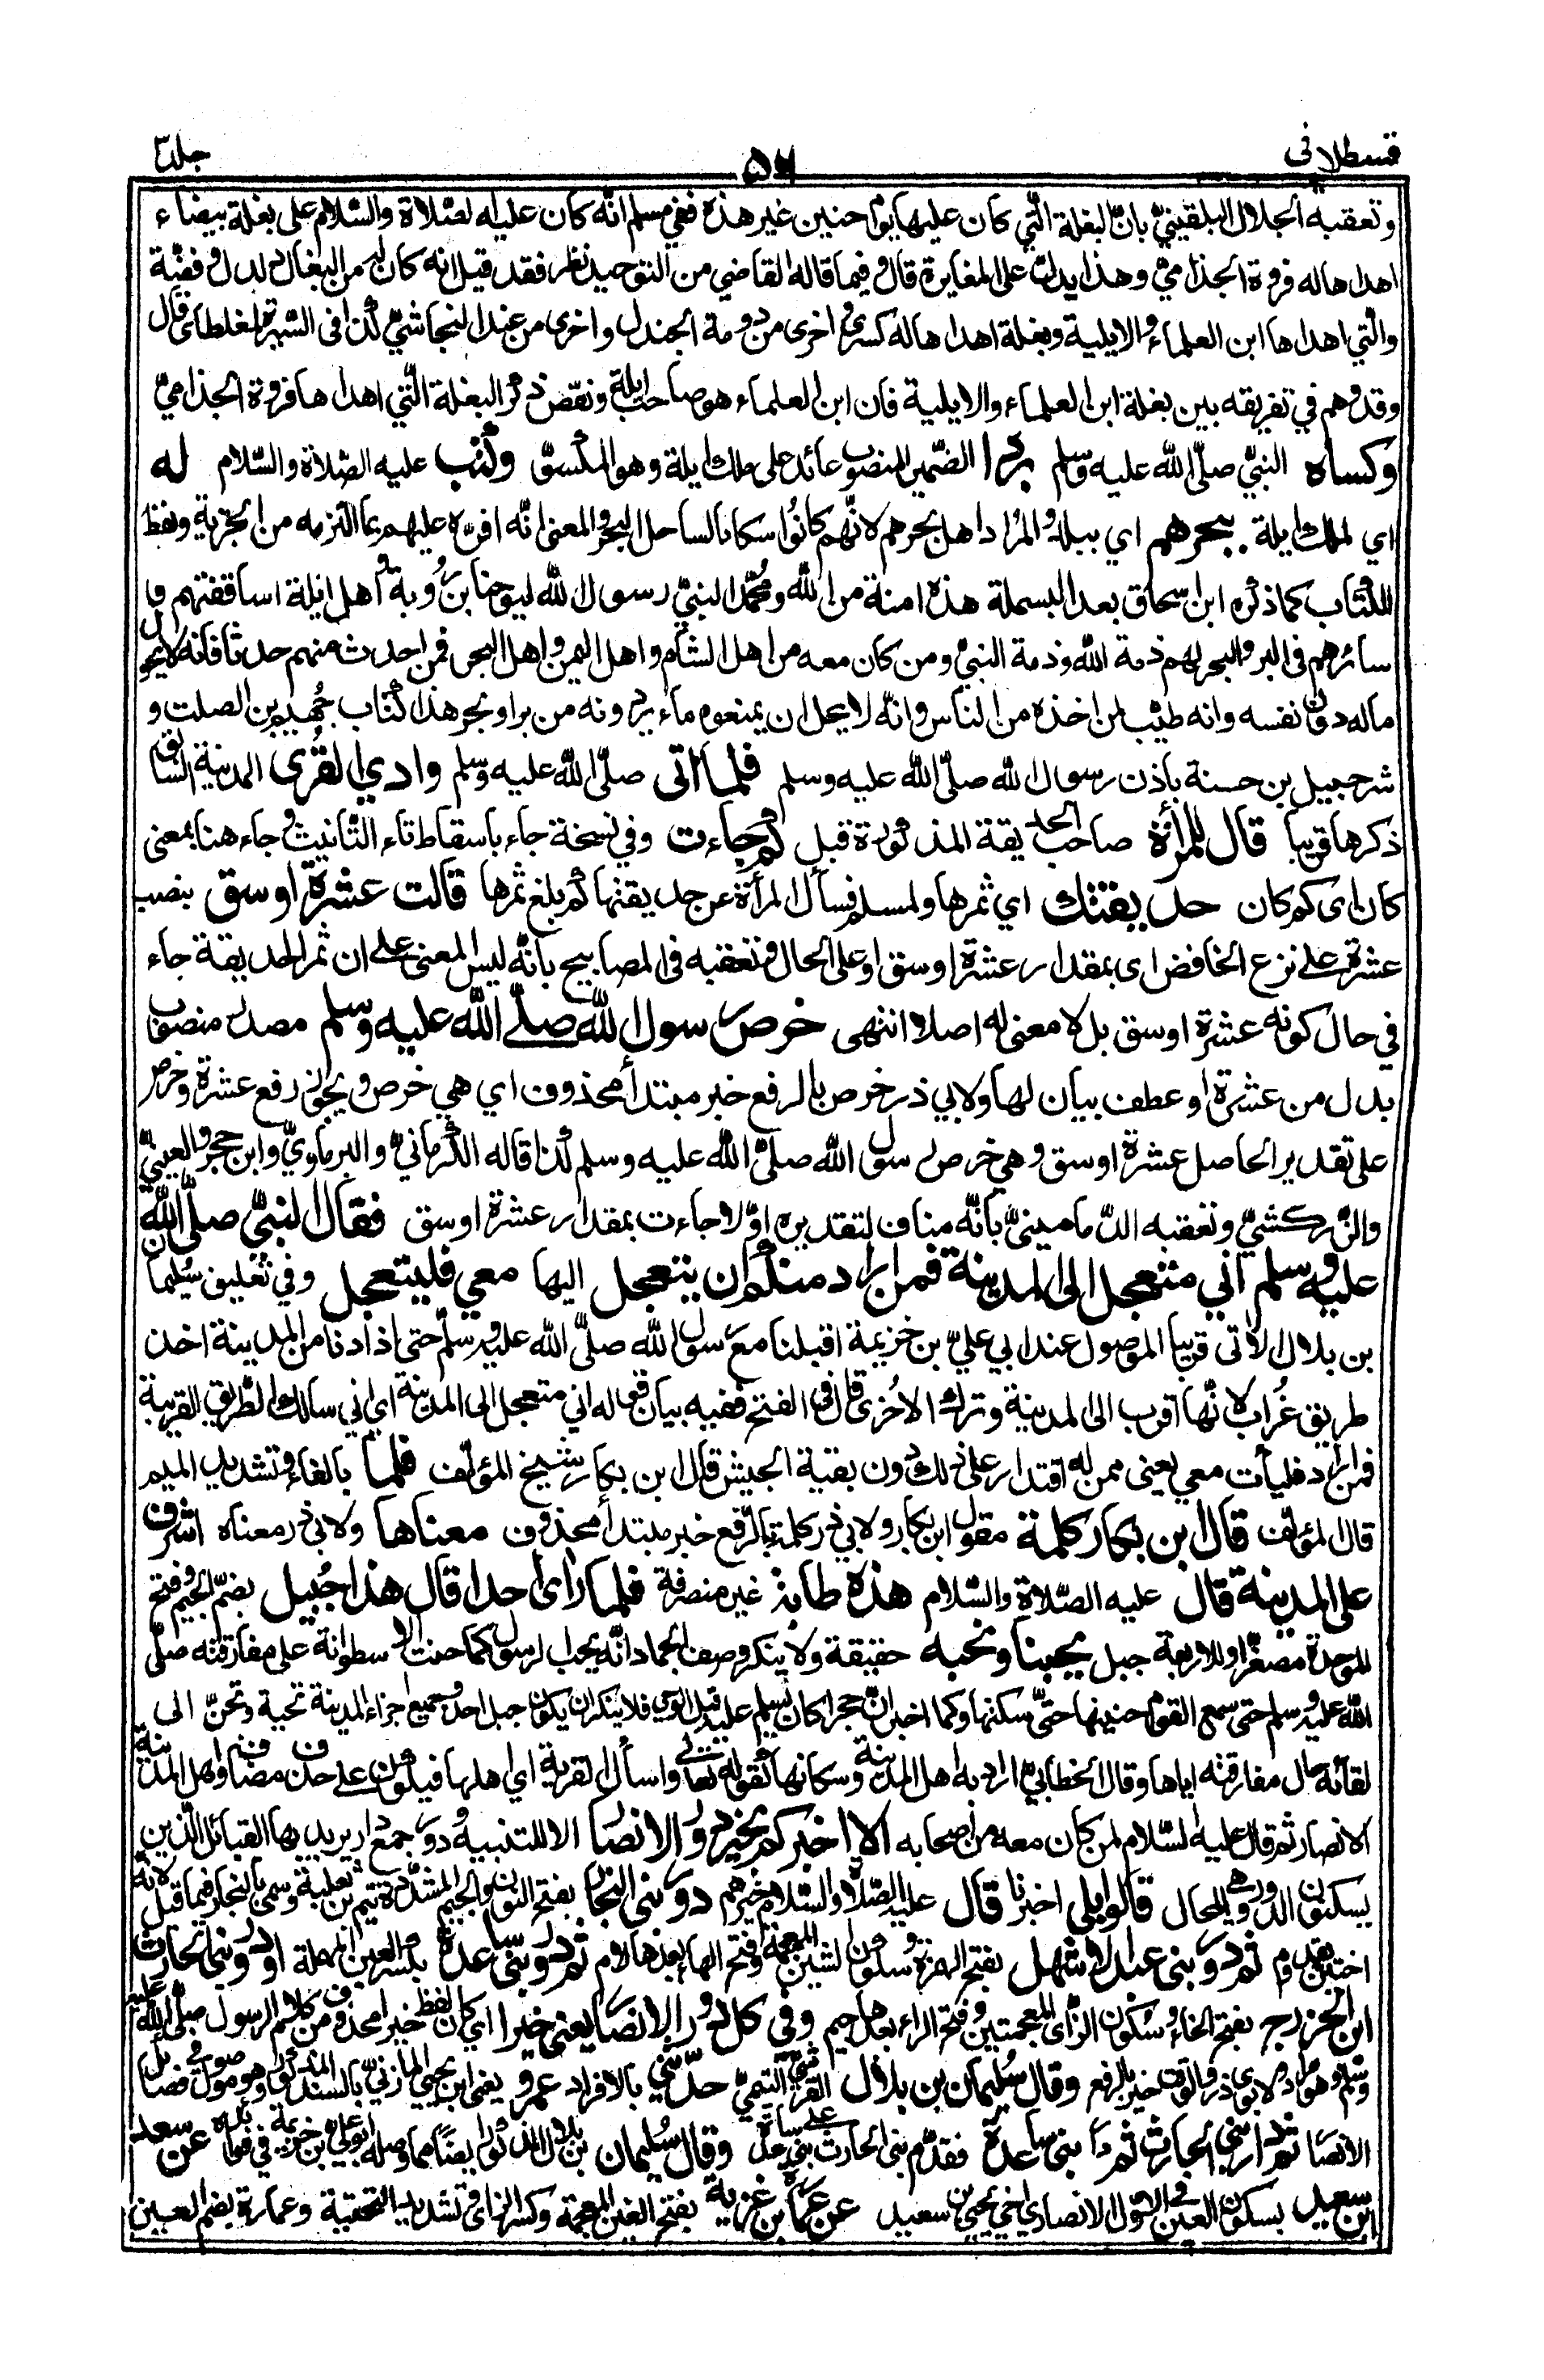 قسطلانى ٥٦ جلد٣
وتعقبه الجلال البلقينيّ بانّ البغلة الّتي كان عليها يوم حنين غير هذه ففي مسلم انّه كان عليه الصّلاة والسّلام على بغلة بيضاء
اهداها له فروة الجذاميّ وهذا يدلّ على المغايرة قال وفيما قاله القاضي من التوحيد نظر فقد قيل انه كان له من البغال دلدل وفضّة
والّتي اهداها ابن العلماء والايلية وبغلة اهداها له كسرى واخرى من دومة الجندل واخرى من عند النجاشيّ كذا في السّيرة لمغلطاى قال
وقد وهم في تفريقه بين بغلة ابن العلماء والايلية فان ابن العلماء هو صاحب ايلة ونقص ذكر البغلة الّتي اهداها فروة الجذاميّ
وكساه النبيّ صلّى الله عليه وسلم بردا الضّمير المنصوب عائد على ملك ايلة وهو المكسوّ وكتب عليه الصّلاة والسّلام له
اي لملك ايلة ببحرهم اي ببلدهم والمراد اهل بحرهم لانّهم كانُوا سكانا لساحل البحر والمعنى انّه اقرّه عليهم بما التزمه من الجزية ولفظ
الكتاب كما ذكره ابن اسحاق بعد البسملة هذه امنة من الله ومحُمّد النبيّ رسول الله ليوحنا بن رُوبة واهل ايلة اساقفتهم و
سائرهم فى البر والبحر لهم ذمة الله وذمة النبيّ ومن كان معه من اهل الشام واهل اليمن واهل البحر فمن احدث منهم حدثا فانه لا يحول
ماله دون نفسه وانه طيّب لمن اخذه من الناس وانّه لا يحل ان يمنعوه ماء يردونه من بر او بحر هذا كتاب جُهيم بن الصلت و
شرحبيل بن حسنة باذن رسول الله صلّى الله عليه وسلم فلما اتى صلّى الله عليه وسلم وادي القُرى المدينة السّابق
ذكرها قريبا قال للمرأة صاحب الحديقة المذكورة قبل كم جاءت وفي نسخة جاء باسقاط تاء التّانيث وجاء هنا بمعنى
كان اى كم كان حديقتك اي ثمرها ولمسلم فسأل المرأة عن حديقتها كم بلغ ثمرها قالت عشرة اوسق بنصب
عشرة على نزع الخافض اى بمقدار عشرة اوسق او على الحال وتعقبه فى المصابيح بانّه ليس المعنى على ان ثمر الحديقة جاء
في حال كونه عشرة اوسق بل لا معنى له اصلا انتهى خرص رسول الله صلّى الله عليه وسلم مصدر منصوب
بدل من عشرة او عطف بيان لها ولابي ذر خرص بالرفع خبر مبتدأ محذوف اي هي خرص ويجوز رفع عشرة وخرص
على تقدير الحاصل عشرة اوسق وهي خرص رسول الله صلّى الله عليه وسلم كذا قاله الكرمانيّ والبرماويّ وابن حجر والعينيّ
والزّركشيّ وتعقبه الدّمامينيّ بانّه مناف لتقديره اوّلا جاءت بمقدار عشرة اوسق فقال النبيّ صلّى الله
عليه وسلم اني متعجل الى المدينة فمن اراد منكم ان يتعجل اليها معي فليتعجل وفي تعليق سُليمان
بن بلال الآتى قريبا الموصول عند ابي عليّ بن خزيمة اقبلنا مع رسول الله صلّى الله عليه وسلم حتى اذا دنا من المدينة اخذ
طريق غُراب لانّها اقرب الى المدينة وترك الاُخرى قال فى الفتح ففيه بيان قوله اني متعجل الى المدينة اي اني سالك الطّريق القريبة
فمن اراد فليأت معي يعنى ممن له اقتدار على ذلك دون بقية الجيش قال ابن بكار شيخ المؤلّف فلمّا بالفاء وتشديد الميم
قال المؤلف قال بن بكار كلمة مقول ابن بكار ولابي ذر كلمة بالرّفع خبر مبتدأ محذوف معناها ولابي ذر معناه اشرف
على المدينة قال عليه الصّلاة والسّلام هذه طابة غير منصرفة فلما راى احدا قال هذا جُبيل بضمّ الجيم وفتح
الموحدة مصغّرا وللاربعة جبل يحبنا ونحبه حقيقة ولا ينكر وصف الجماد انّه يحب الرسول كما حنت الاسطوانة على مفارقته صلّى
الله عليه وسلم حتى سمع القوم حنينها حتى سكنها وكما اخبر انّ حجرا كان يسلم عليه قبل الوحي فلا ينكر ان يكون جبل احد وجميع اجزاء المدينة تحبه وتحنّ الى
لقائه حال مفارقته اياها وقال الخطابيّ اراد به اهل المدينة وسكانها كقوله تعالى واسأل القرية اي اهلها فيكون على حذف مضاف واهل المدينة
الانصار ثم قال عليه السّلام لمن كان معه من اصحابه الا اخبركم بخير دور الانصار الا للتنبيه ودور جمع دار يريد بها القبائل الّذين
يسكنون الدور وهي المحال قالوا بلى اخبرنا قال عليه الصّلاة والسّلام خيرهم دور بنى النجار بفتح النون والجيم المشدّدة تيم بن ثعلبة وسمي بالنجار فيما قيل لانّه
اختتن بقدوم ثم دور بنى عبد الاشهل بفتح الهمزة وسكون الشين المعجمة وفتح الهاء بعدها لام ثم دور بنى ساعدة بكسر العين المهملة او دور بنى الحارث
ابن الخزرج بفتح الخاء وسكون الزّاى المعجمتين وفتح الراء بعدها جيم وفى كل دور الانصار يعنى خيرا اي كان لفظ خيرا محذوف من كلام الرسول صلّى الله عليه
وسلم وهو مراد ولابوى ذر والوقت خير بالرفع وقال سُليمان بن بلال القرشيّ التيميّ حدّثني بالافراد عمرو يعنى ابن يحيى المازنيّ بالسند المذكور وهو موصول في فضائل
الانصار ثم دار بني الحارث ثم دار بنى ساعدة فقدّم بنى الحارث على بني ساعدة وقال سُليمان بن بلال المذكور ايضًا مما وصله ابو علي بن خزيمة في فوائده عن سعد
ابن سعيد بسكون العين في الاول الانصاري اخي يحيى بن سعيد عن عمارة بن غزية بفتح الغين المعجمة وكسر الزاى وتشديد التحتية وعمارة بضم العين